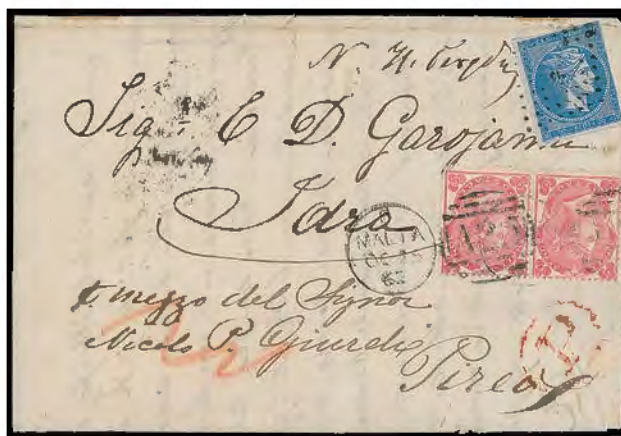 Sig. E D. Garojanni
Idra
MALTA
OC 15
63
A25
mezzo del Signor
Nicolo P. Giurdi
Pirea